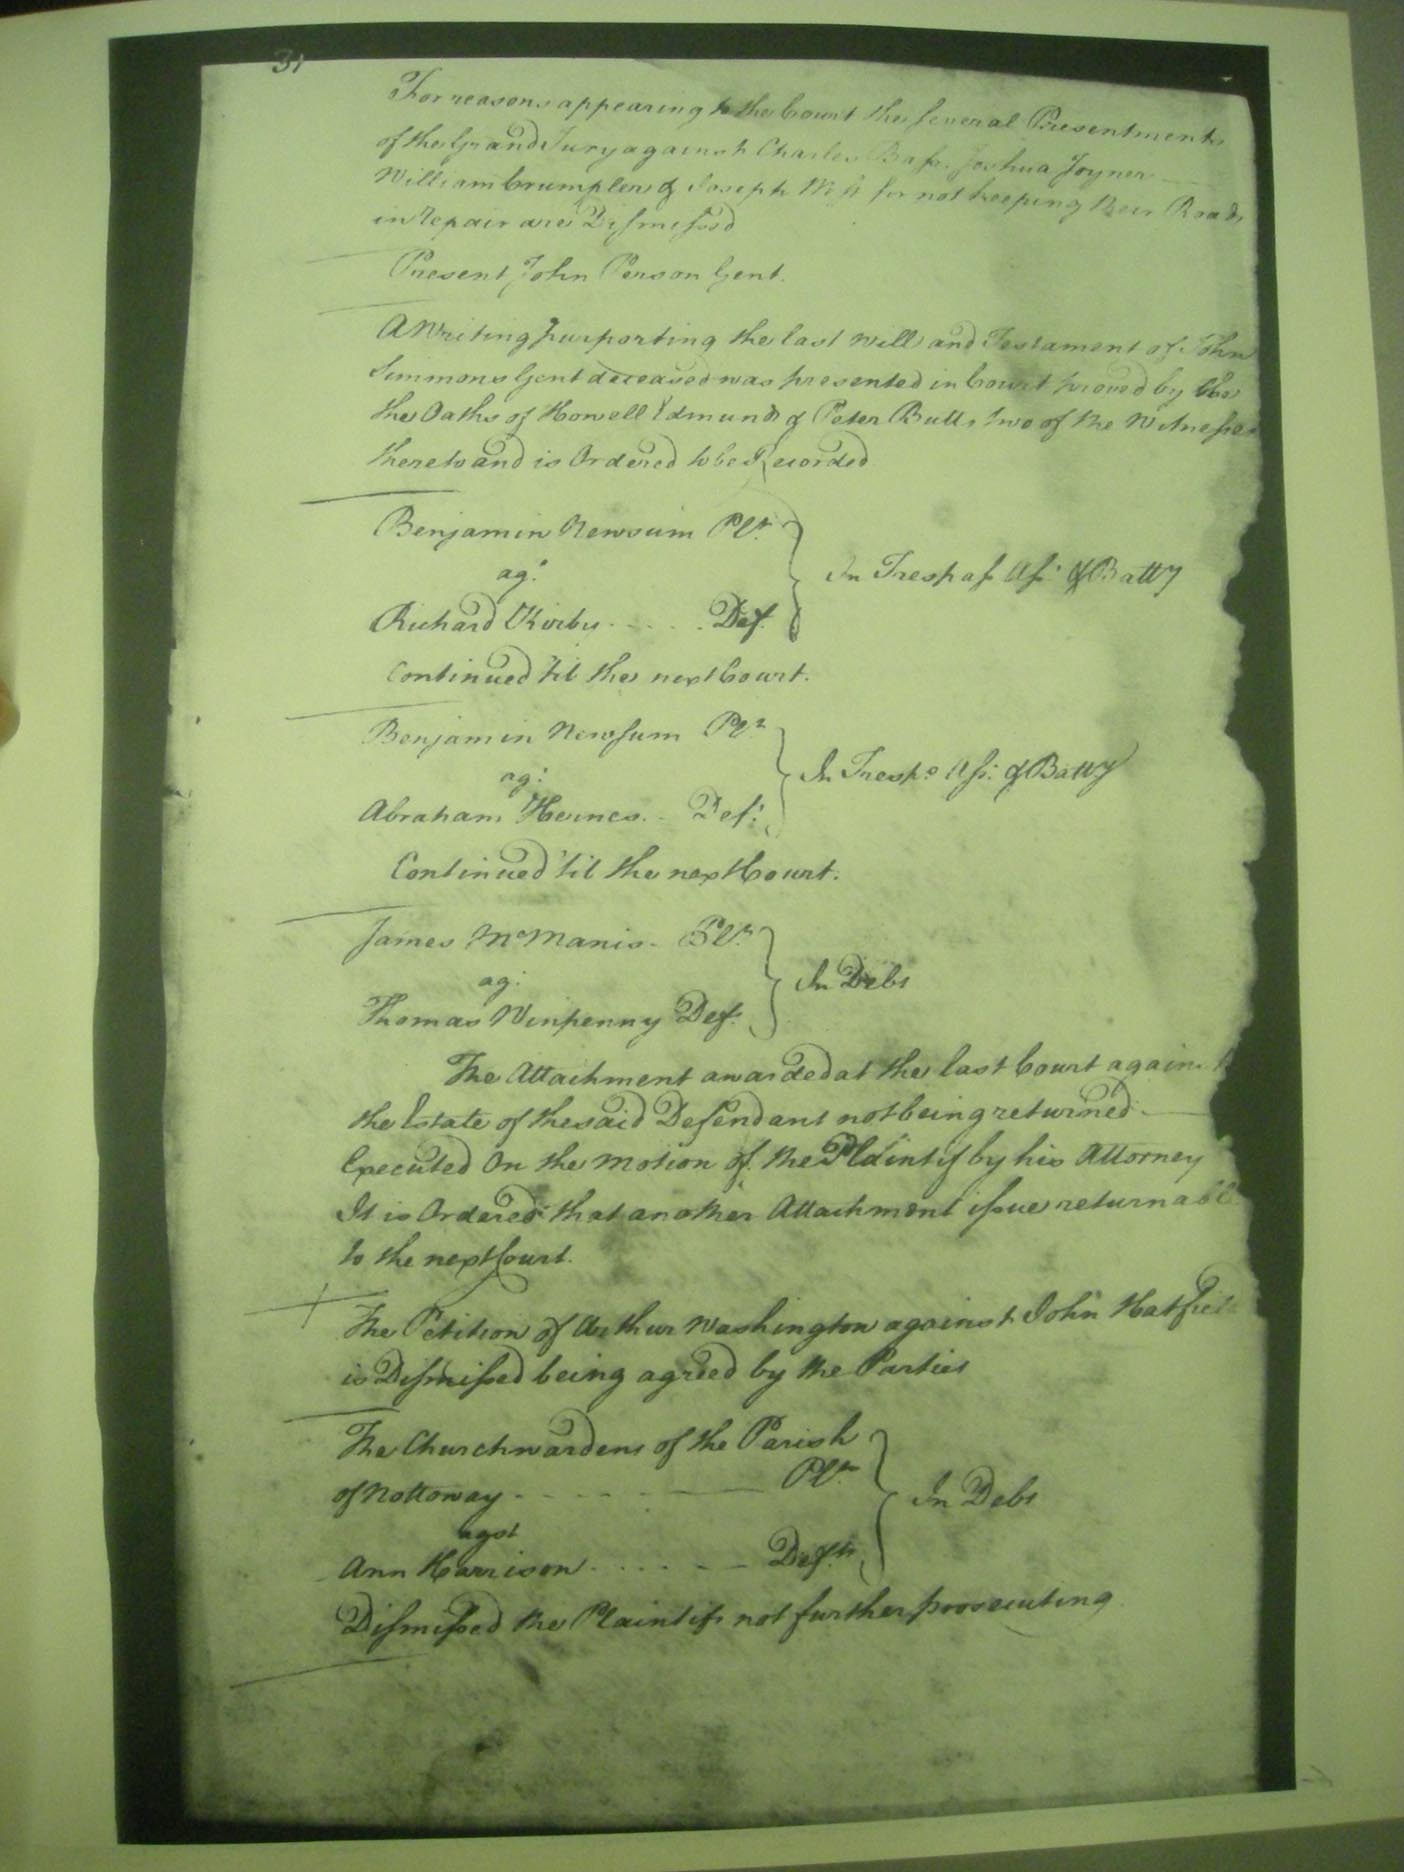 31
For reasons appearing to the Court the several Presentments
of the Grand Jury against Charles Bass Joshua Joyner
William Crumpler & Joseph for not keeping their Roads
in repair are Dismissed
Present John Person Gent.
A Writing purporting the last will and Testament of John
Simmons Gent deceased was presented in Court proved by the
the Oaths of Howell Edmunds & Peter Butts two of the Witnesses
thereto and is Ordered to be Recorded
Benjamin Newsum Plt.
agt.
Richard Kirby ..... Def.
In Trespass Ass. & Batty
Continued 'til the next Court.
Benjamin Newsum Plt.
agt.
Abraham Hernes.. Def.
In Tresps. Ass. & Batty
Continued 'til the next Court.
James McManis. Plt.
agt.
Thomas Winpenny Def.
In Debt
The Attachment awarded at the last Court against
the Estate of the said Defendant not being returned
Executed On the motion of the Plaintif by his Attorney
It is Ordered that another Attachment issue returnable
to the next Court.
The Petition of Arthur Washington against John Hatfield
is Dismissed being agreed by the Parties
The Churchwardens of the Parish
of Nottoway ..... Plts.
agst
Ann Harrison ..... Deft.
In Debt
Dismissed the Plaintifs not further prosecuting